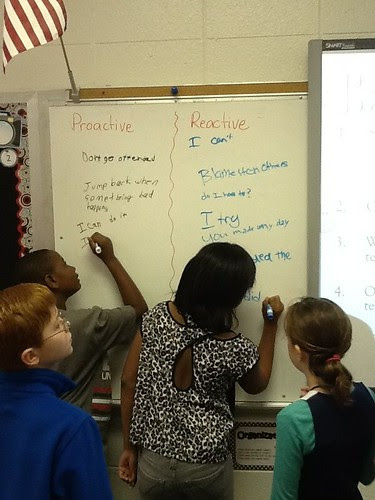 SMART
Proactive
Reactive
Don't get offended
Jump back when
something bad
happens
I can do it
I
I can't
Blame ten others
do I have to?
I try
You made my day
ded the
2
2
3
4
Organizer